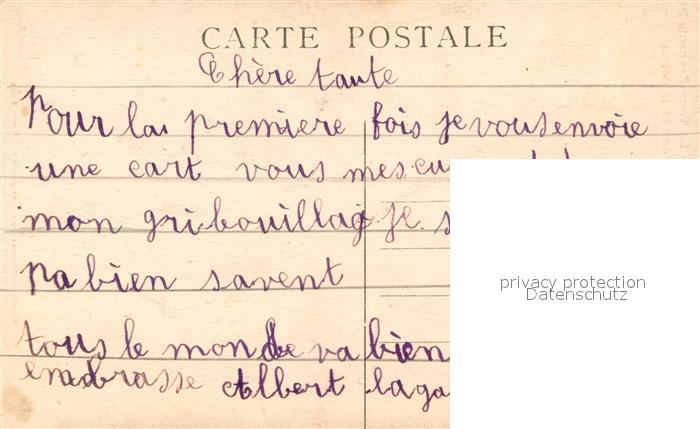 CARTE POSTALE
Chère tante
Pour la premiere fois je vous envoie
une cart vous
mon gribouillag je
pa bien savent
tous le monde va bien
embrasse Albert
privacy protection
Datenschutz